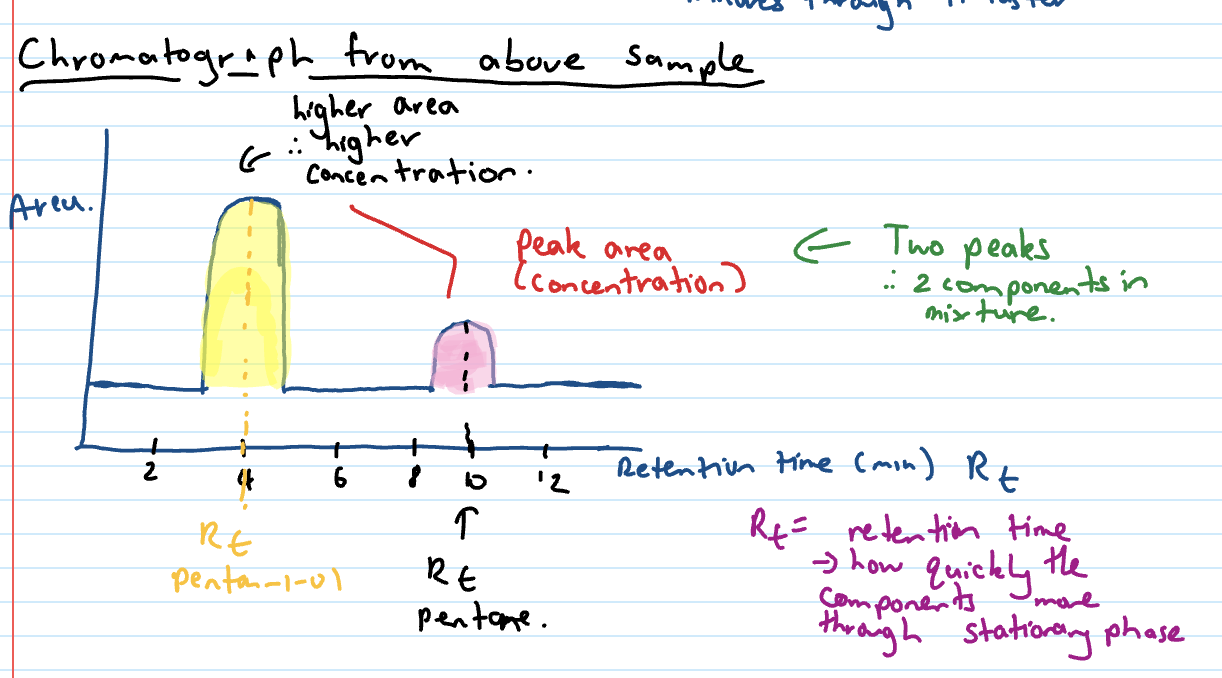 through it faster
Chromatograph from above sample
higher area
∴ higher
concentration.
Area.
Peak area
(concentration)
Two peaks
∴ 2 components in
mixture.
2 4 6 8 10 12
Retention time (min) Rt
Rt
pentan-1-ol
Rt
pentane.
Rt = retention time
→ how quickly the
components move
through stationary phase